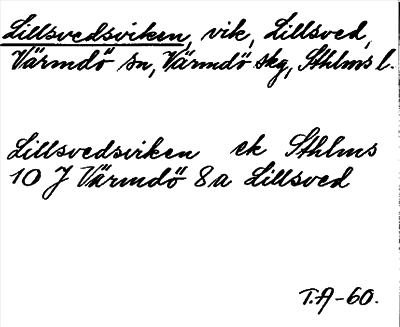 Lillsvedsviken, vik, Lillsved,
Värmdö sn, Värmdö skg, Sthlms l.
Lillsvedsviken ek Sthlms
10 J Värmdö 8a Lillsved
T.A-60.